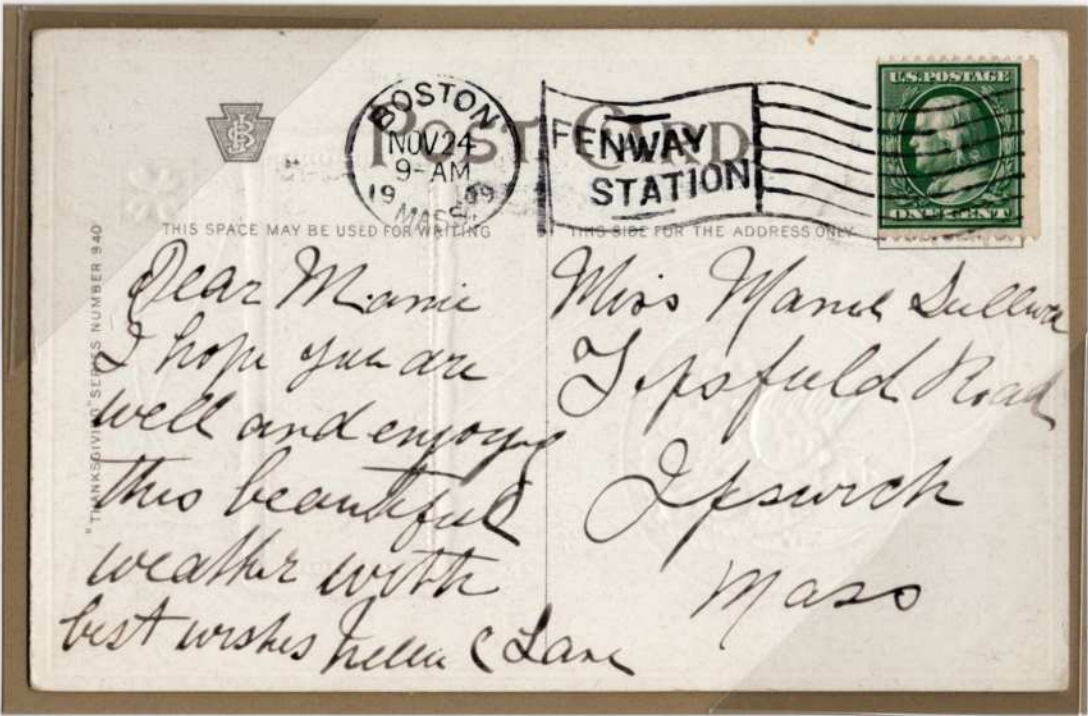 POST CARD
BOSTON
NOV 24
9-AM
1909
MASS.
FENWAY
STATION
U.S. POSTAGE
ONE CENT
THIS SPACE MAY BE USED FOR WRITING
THIS SIDE FOR THE ADDRESS ONLY
"THANKSGIVING" SERIES NUMBER 940
Dear Mamie
I hope you are
well and enjoying
this beautiful
weather with
best wishes Helen C Lane
Miss Mamie
Topsfield Road
Ipswich
Mass